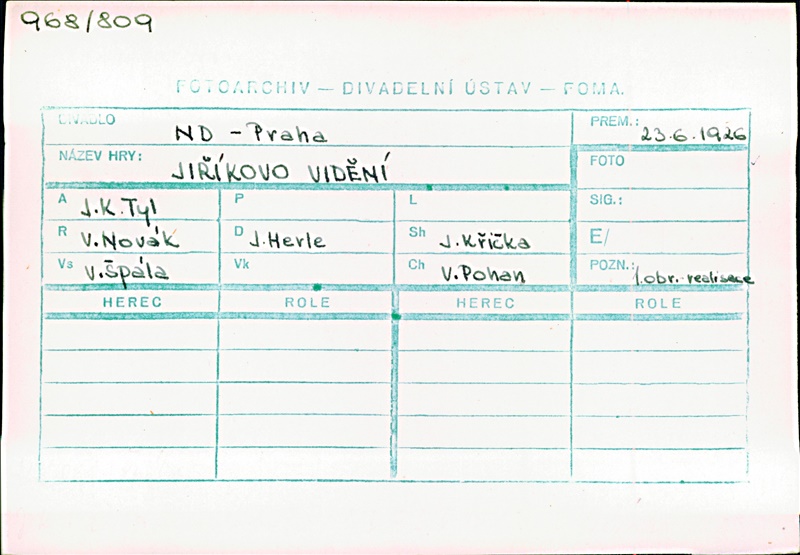 968/809
FOTOARCHIV — DIVADELNÍ ÚSTAV — FOMA.
DIVADLO ND - Praha
PREM.: 23.6.1926
NÁZEV HRY: JIŘÍKOVO VIDĚNÍ
FOTO
A J.K.Tyl P L SIG.:
R V.Novák D J.Herle Sh J.Křička E/
Vs V.Špála Vk Ch V.Pohan POZN.: 1.obr.-realisace
HEREC ROLE HEREC ROLE